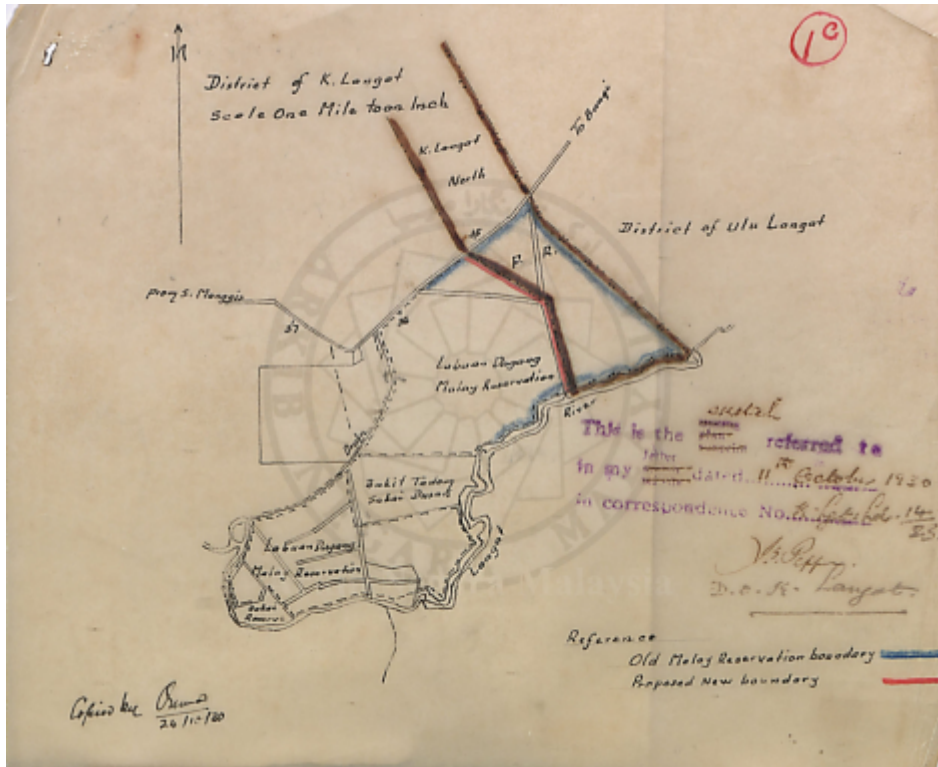 1c
N
District of K. Langat
Scale One Mile to an Inch
To Bangi
K. Langat
North
District of Ulu Langat
F. R.
From S. Manggis
Labuan Dagang
Malay Reservation
River
Bukit Tadong
Sakai
Labuan Dagang
Malay Reservation
Sakai
Reserve
Langat
This is the sketch referred to
in my letter dated 11th October 1930
in correspondence No. 14/23
D.O. K. Langat.
Reference
Old Malay Reservation boundary
Proposed New boundary
Copied by